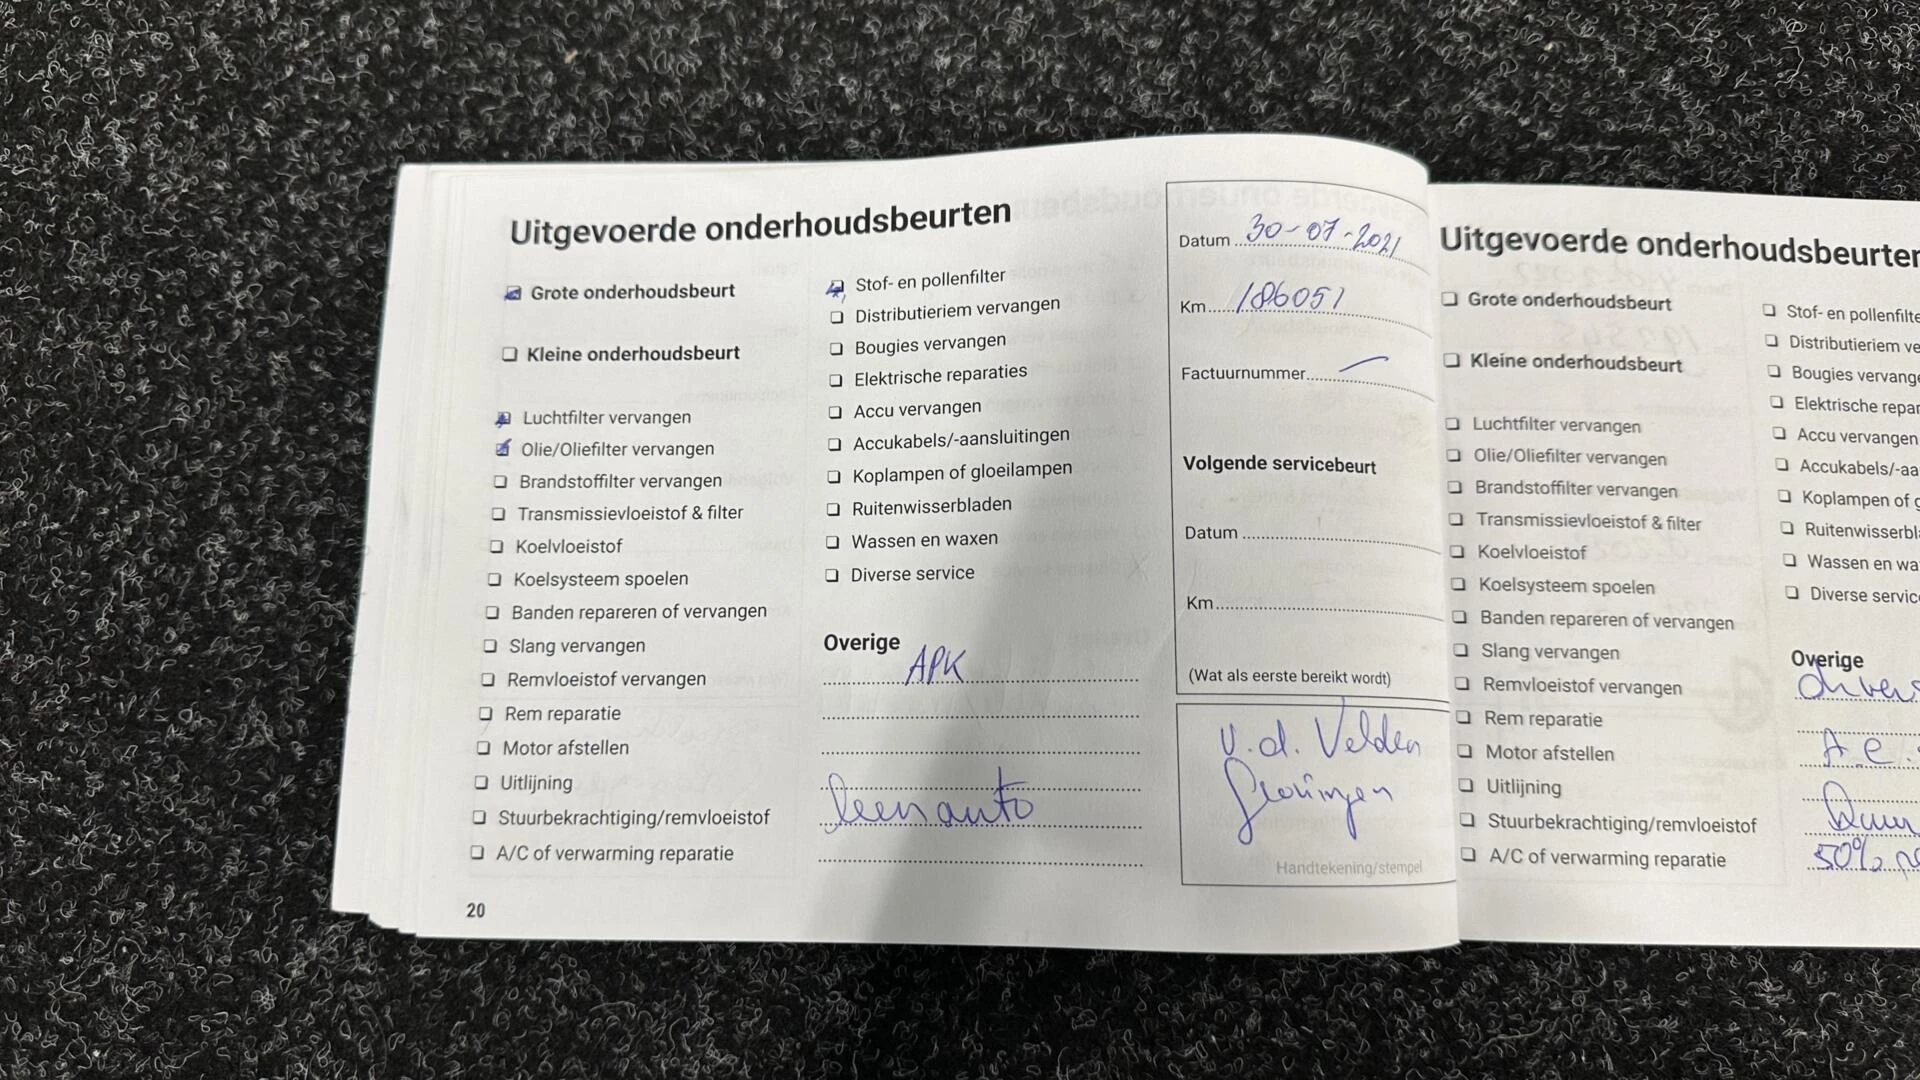 Uitgevoerde onderhoudsbeurten
Grote onderhoudsbeurt
Kleine onderhoudsbeurt
Luchtfilter vervangen
Olie/Oliefilter vervangen
Brandstoffilter vervangen
Transmissievloeistof & filter
Koelvloeistof
Koelsysteem spoelen
Banden repareren of vervangen
Slang vervangen
Remvloeistof vervangen
Rem reparatie
Motor afstellen
Uitlijning
Stuurbekrachtiging/remvloeistof
A/C of verwarming reparatie
20
Stof- en pollenfilter
Distributieriem vervangen
Bougies vervangen
Elektrische reparaties
Accu vervangen
Accukabels/-aansluitingen
Koplampen of gloeilampen
Ruitenwisserbladen
Wassen en waxen
Diverse service
Overige
APK
leenauto
Datum 30-07-2021
Km 186051
Factuurnummer
Volgende servicebeurt
Datum
Km
(Wat als eerste bereikt wordt)
v.d. Velden
Groningen
Handtekening/stempel
Uitgevoerde onderhoudsbeurten
Grote onderhoudsbeurt
Kleine onderhoudsbeurt
Luchtfilter vervangen
Olie/Oliefilter vervangen
Brandstoffilter vervangen
Transmissievloeistof & filter
Koelvloeistof
Koelsysteem spoelen
Banden repareren of vervangen
Slang vervangen
Remvloeistof vervangen
Rem reparatie
Motor afstellen
Uitlijning
Stuurbekrachtiging/remvloeistof
A/C of verwarming reparatie
Stof- en pollenfilte
Distributieriem ve
Bougies vervange
Elektrische repar
Accu vervangen
Accukabels/-aa
Koplampen of g
Ruitenwisserbl
Wassen en wa
Diverse servic
Overige
A.C.
50%